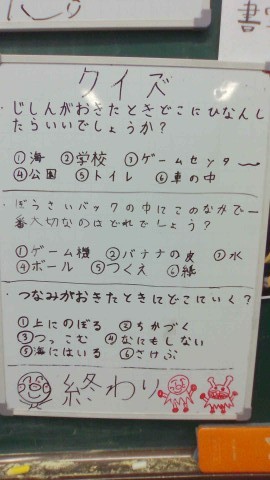 クイズ
・じしんがおきたときどこにひなんし
たらいいでしょうか?
①海 ②学校 ③ゲームセンター
④公園 ⑤トイレ ⑥車の中
・ぼうさいバックの中にこのなかで一
番大切なのはどれでしょう?
①ゲーム機 ②バナナの皮 ③水
④ボール ⑤つくえ ⑥紙
・つなみがおきたときにどこにいく?
①上にのぼる ②ちかづく
③つっこむ ④なにもしない
⑤海にはいる ⑥さけぶ
終わり